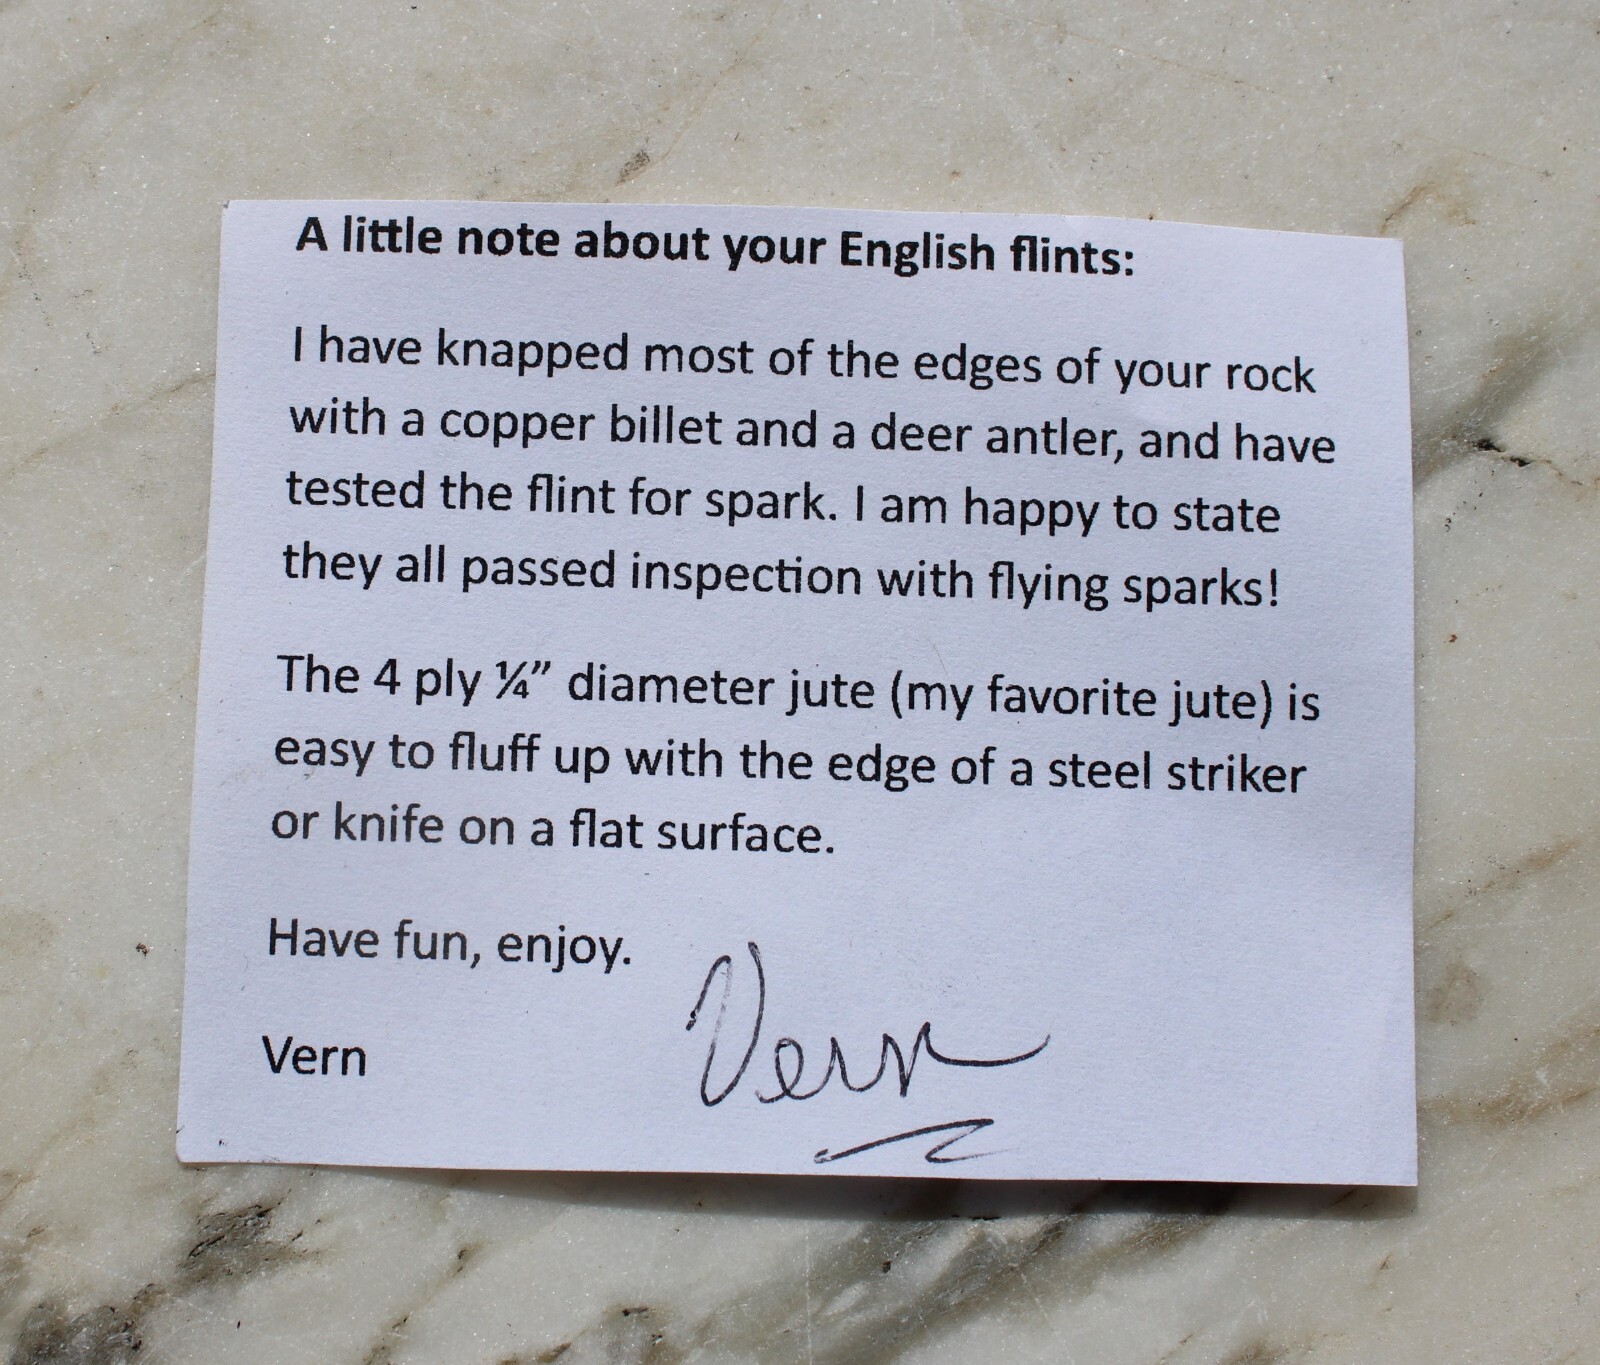 A little note about your English flints:
I have knapped most of the edges of your rock
with a copper billet and a deer antler, and have
tested the flint for spark. I am happy to state
they all passed inspection with flying sparks!
The 4 ply ¼” diameter jute (my favorite jute) is
easy to fluff up with the edge of a steel striker
or knife on a flat surface.
Have fun, enjoy.
Vern
Vern